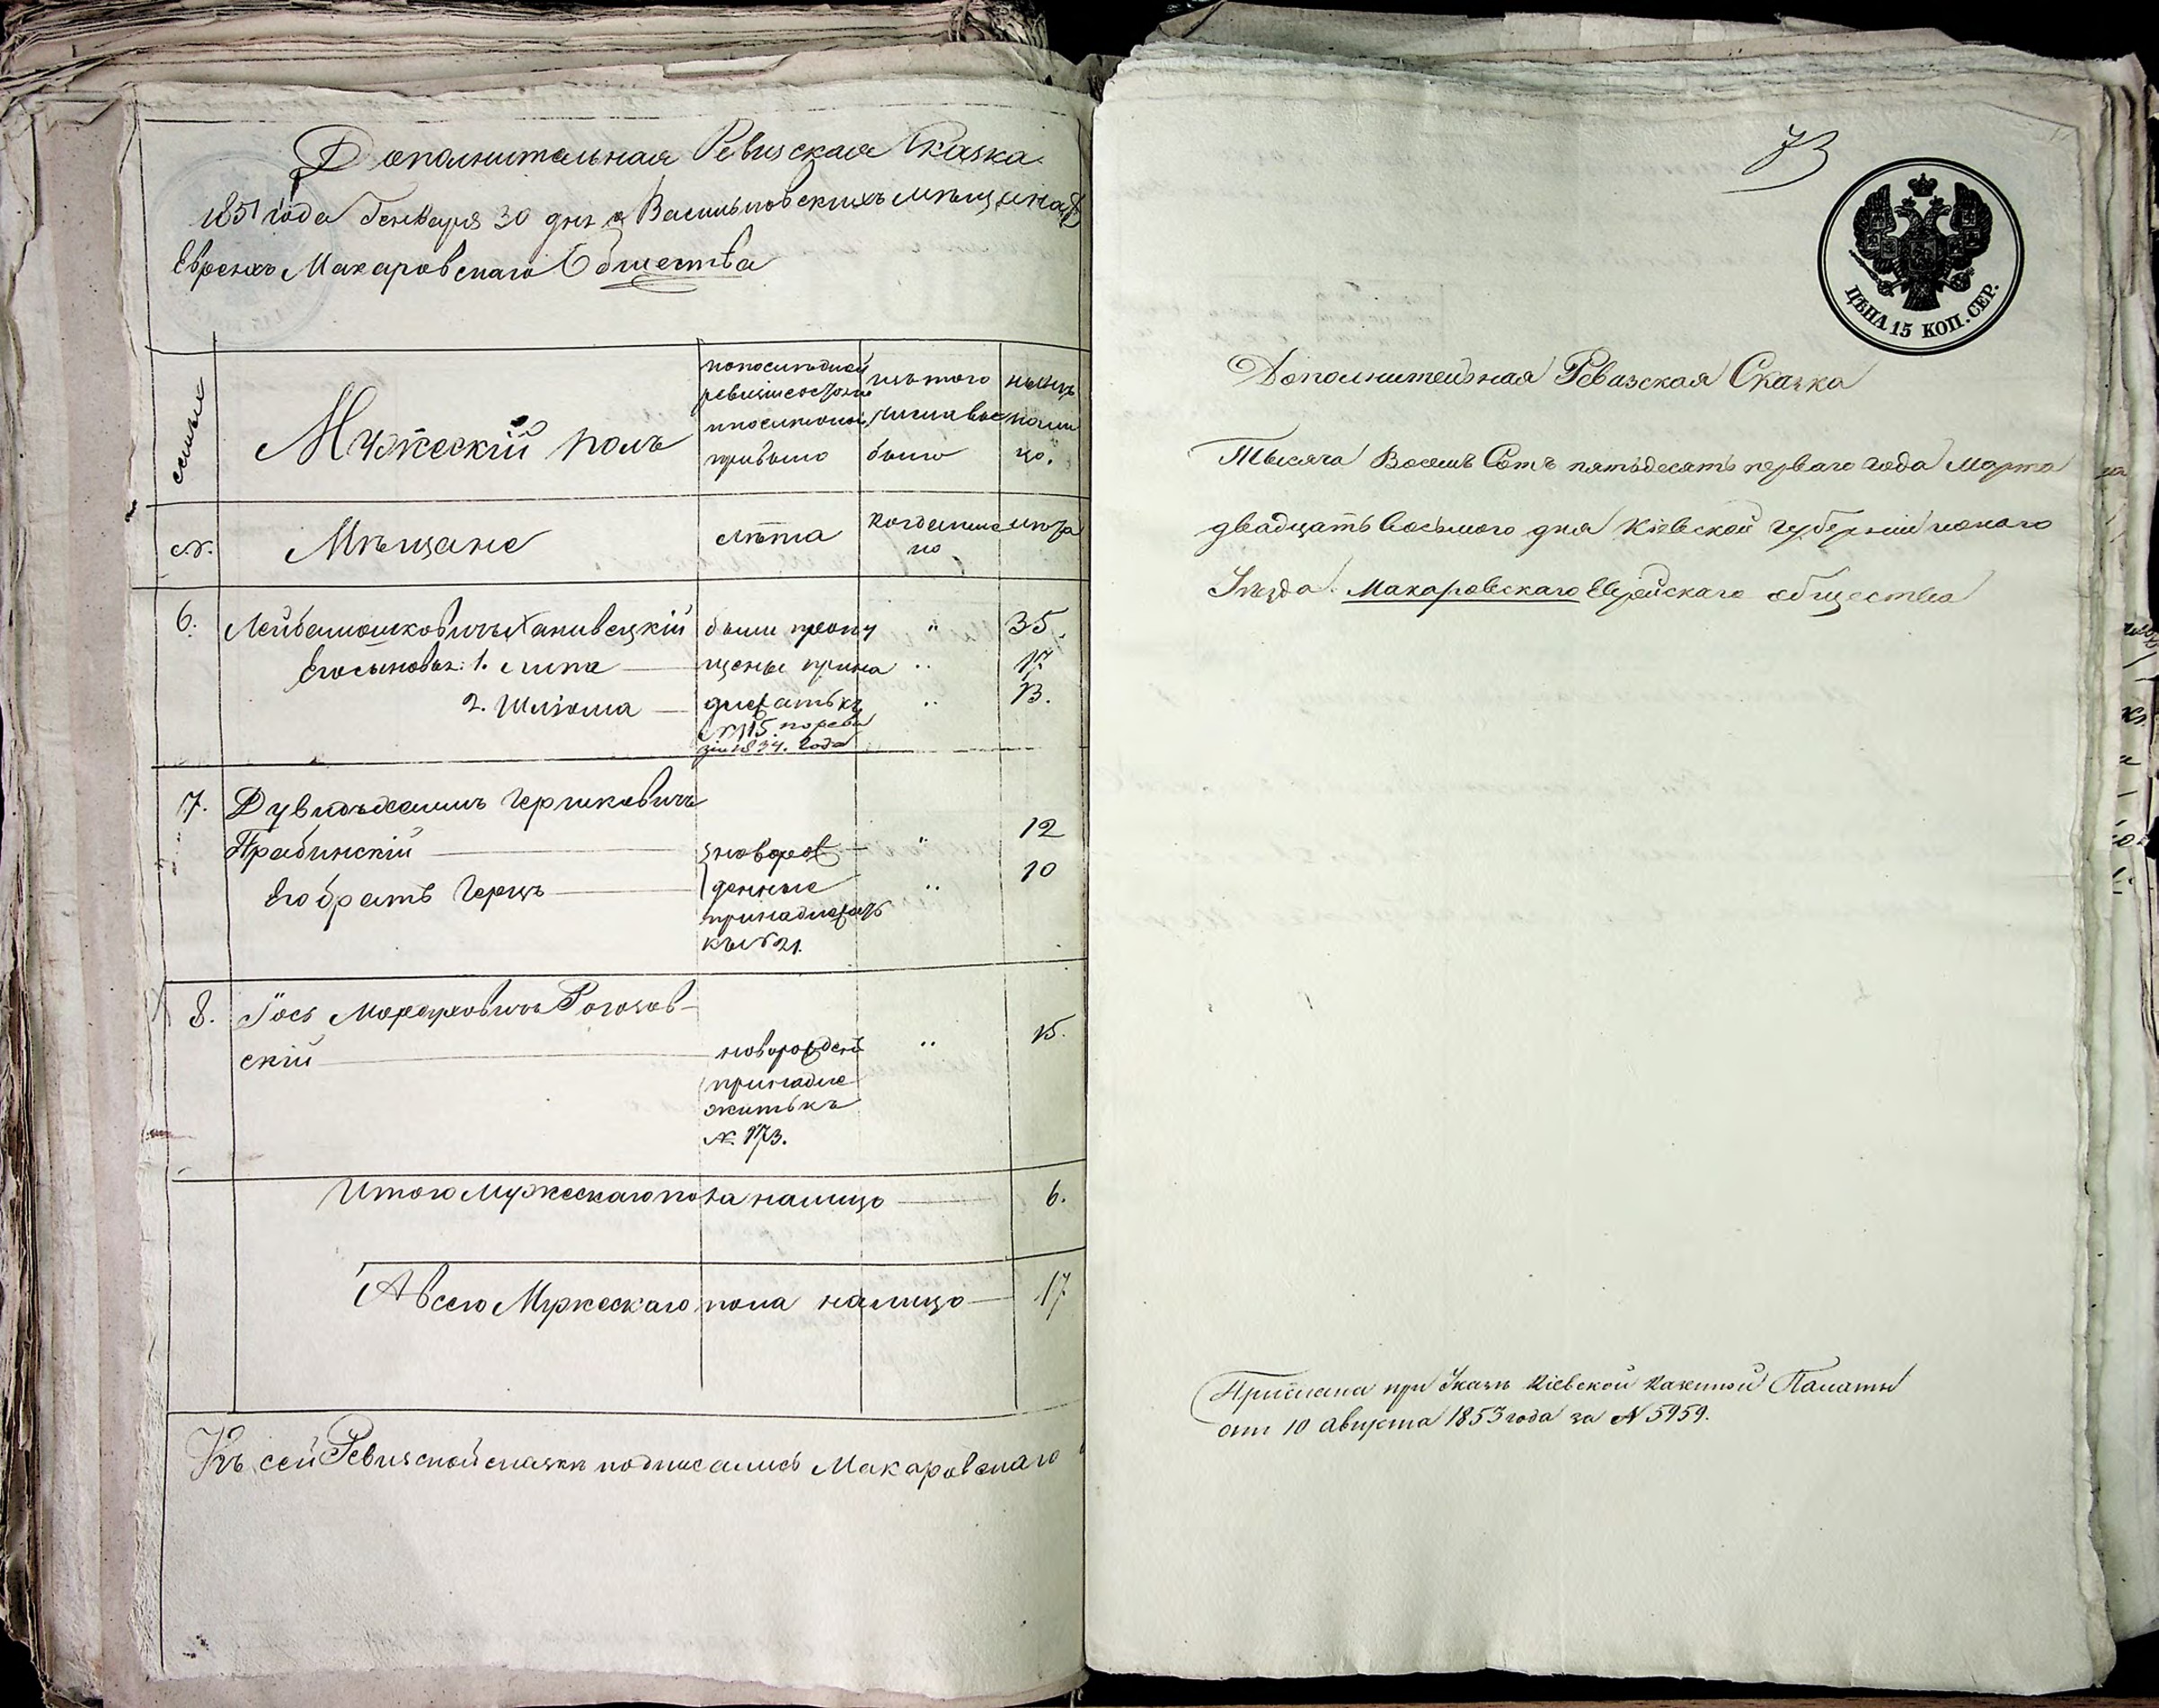 Дополнительная Ревизская Сказка
1851 года Генваря 30 дня о Васильковскихъ мѣщанахъ
Евреяхъ Макаровскаго Общества
семьи
Мужескій полъ
по последней
ревизіи состояло
и после оной
прибыло
изъ того
числа вы
было
нынѣ
на ли
цо.
№.
Мѣщане
лѣта
когда имен
но
лѣта
6. Лейба Мошковичъ Ханивецкій были пропу " 35.
Его сыновья: 1. Липа щены прина " 17.
2. Шліома длежатъ къ " 13.
№ 15. по реви
зіи 1834. года
7. Дувидъ Хаимъ Гершковичъ
Грабинскій новорож " 12
Его братъ Герцъ денные " 10
принадлежатъ
къ № 21.
8. Іось Мордуховичъ Рогозов-
скій новорожденъ " 15.
принадле
житъ къ
№. 173.
Итого Мужескаго пола налицо 6.
А всего Мужескаго пола налицо 17
Къ сей Ревизской сказкѣ подписались Макаровскаго
73
ЦѢНА 15 КОП. СЕР.
Дополнительная Ревизская Сказка
Тысяча Восемь Сотъ пятьдесятъ перваго года Марта
двадцать восьмого дня Кіевской губерніи
Уѣзда. Макаровскаго Еврейскаго общества
Прислана при Указѣ Кіевской Казенной Палаты
отъ 10 Августа 1853 года за № 5959.